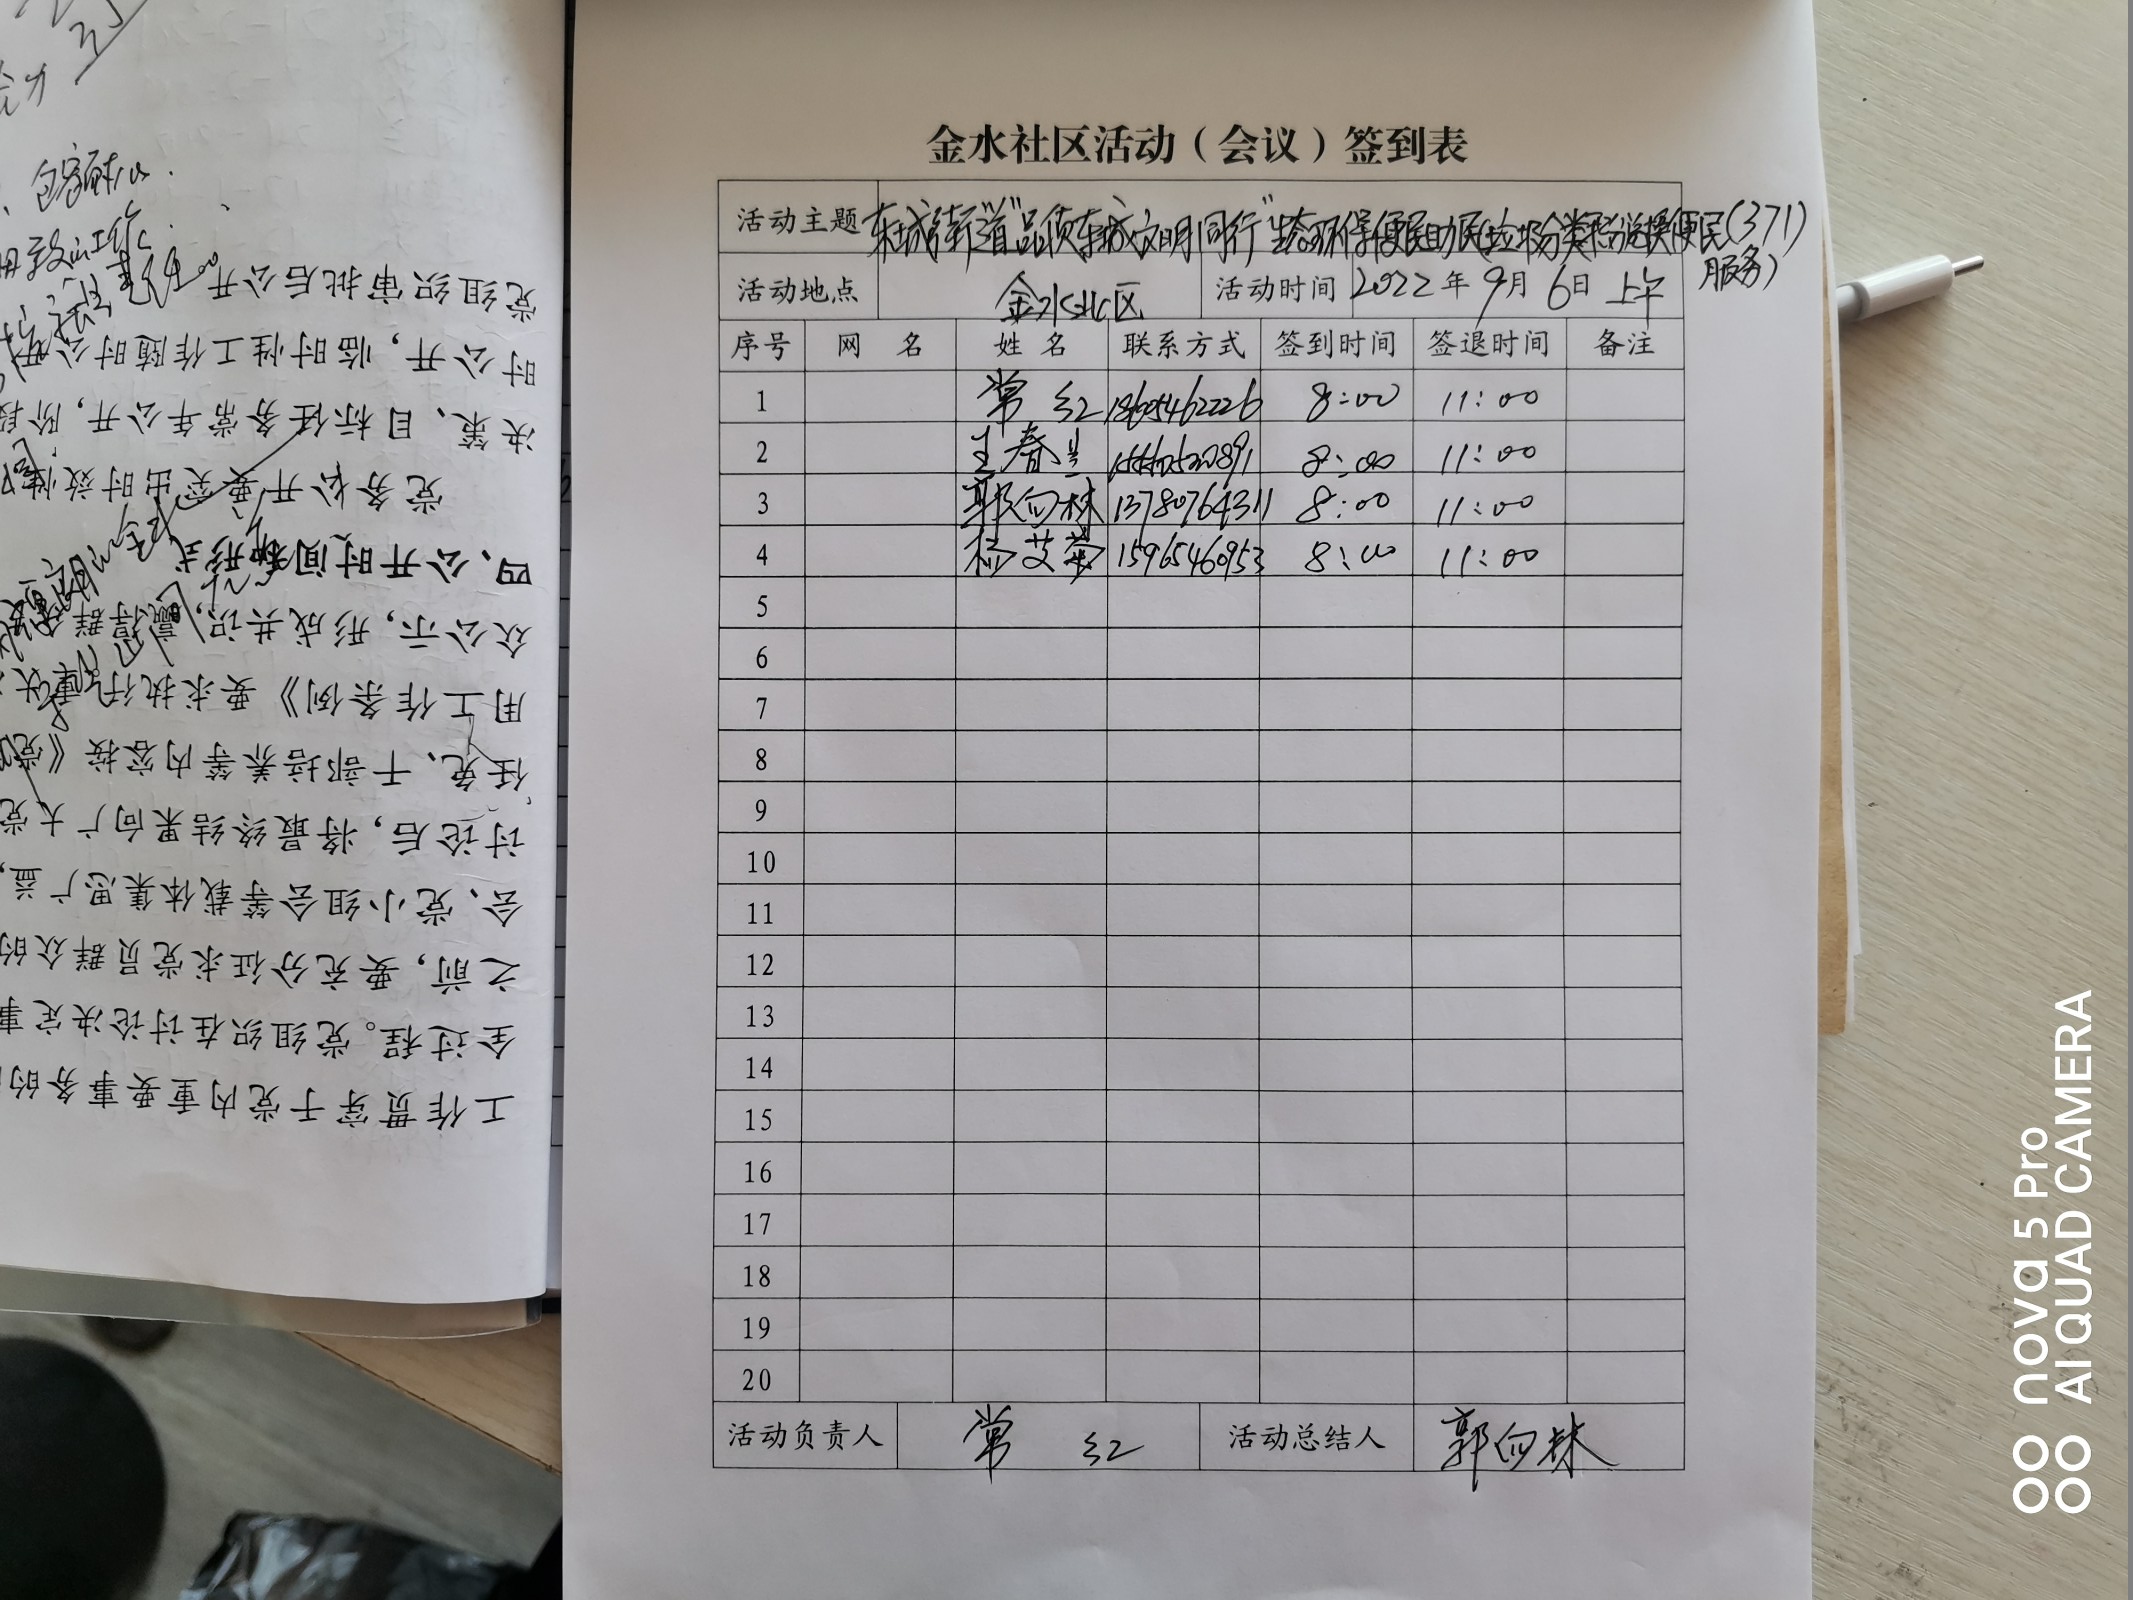 金水社区活动（会议）签到表
活动主题 东城街道"品质东城文明同行"生态环保便民助民垃圾分类积分兑换便民(371)
服务)
活动地点 金水社区 活动时间 2022年9月6日 上午
序号 网 名 姓 名 联系方式 签到时间 签退时间 备注
1 常 红 18605462226 8:00 11:00
2 王春兰 8:00 11:00
3 郭向林 13780764311 8:00 11:00
4 杨艾菊 15965460953 8:00 11:00
5
6
7
8
9
10
11
12
13
14
15
16
17
18
19
20
活动负责人 常 红 活动总结人 郭向林
工作贯穿于党内重要事务的
全过程。党组织在讨论决定事
之前，要充分征求党员群众的
会、党小组会等载体集思广益，
讨论后，将最终结果向广大党
任免、干部培养等内容按《党
用工作条例》要求执行
众公示，形成共识，赢得群众
四、公开时间和形式
党务公开要突出时效性
决策、目标任务常年公开，阶段
时公开，临时性工作随时公开
党组织审批后公开
nova 5 Pro
AI QUAD CAMERA